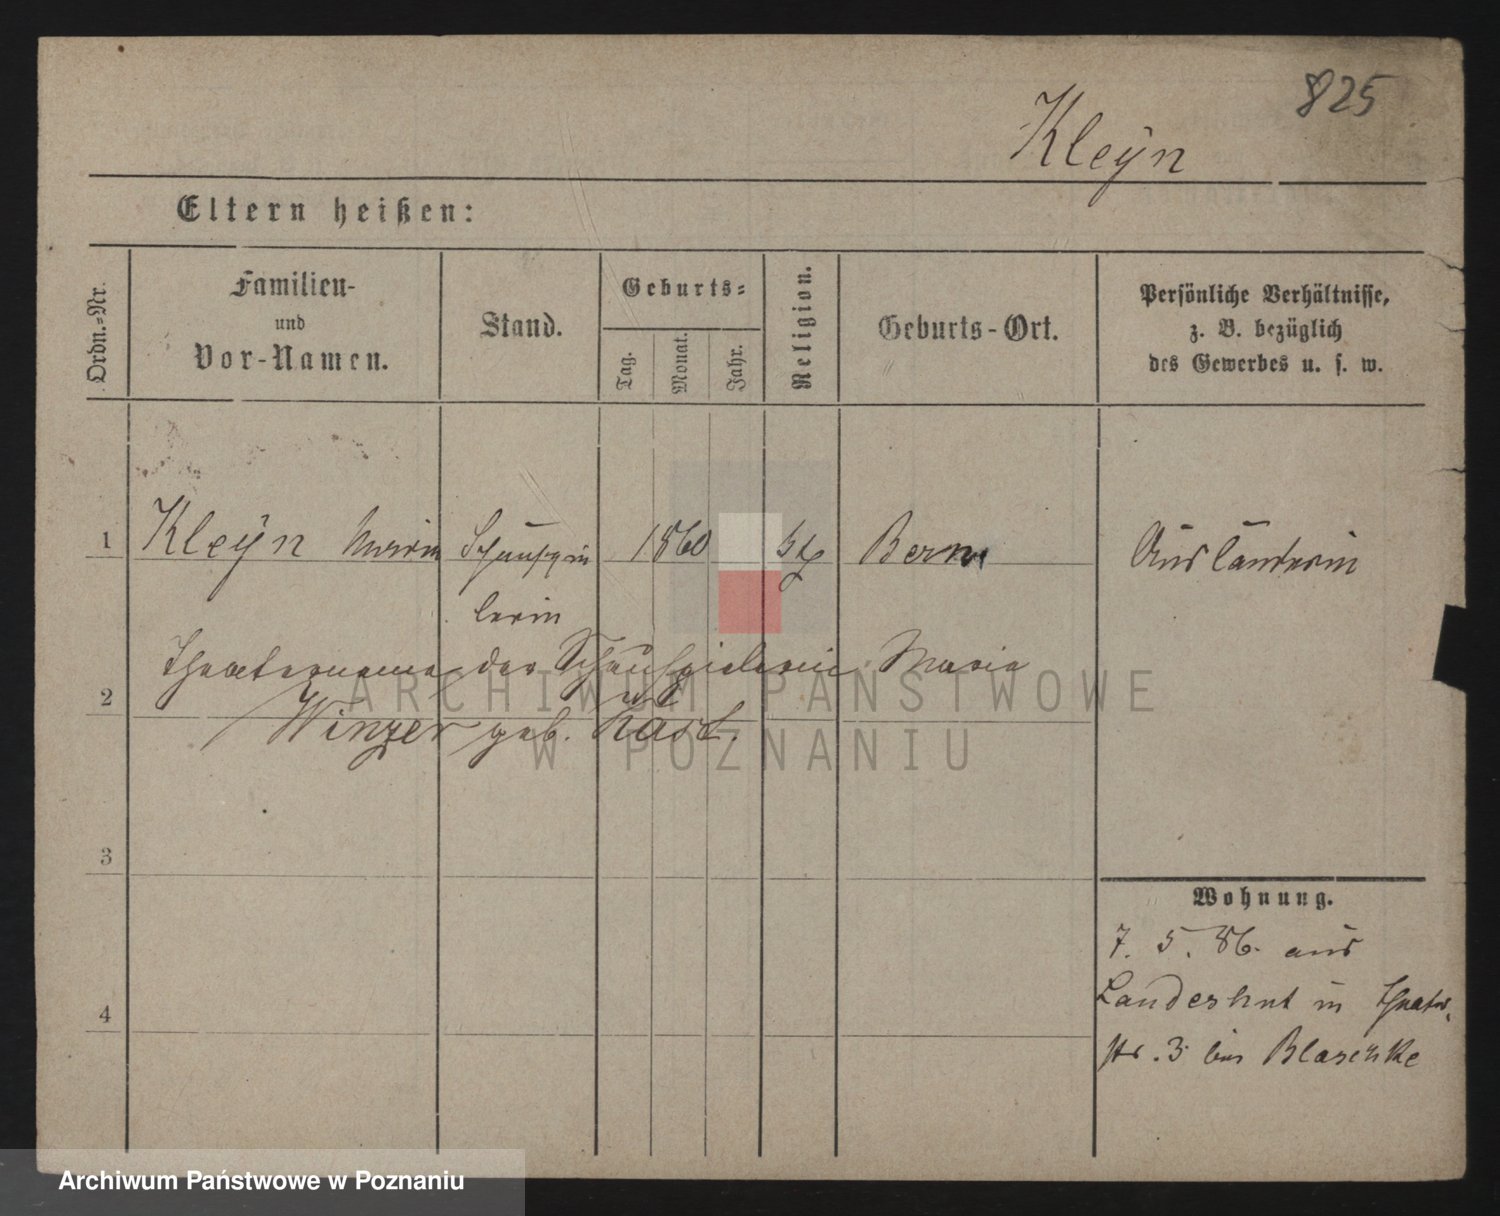 825
Kleÿn
Eltern heißen:
Ordn.-Nr.
Familien-
und
Vor-Namen.
Stand.
Geburts-
Tag.
Monat.
Jahr.
Religion.
Geburts-Ort.
Persönliche Verhältnisse,
z. B. bezüglich
des Gewerbes u. s. w.
1 Kleÿn Maria Schauspie 1860 Bern Ausländerin
lerin
Theatername der Schauspielerin Maria
2
Winzer geb. Käst.
ARCHIWUM PAŃSTWOWE
W POZNANIU
3
Wohnung.
7. 5. 86. aus
4
Landeshut in Theater
str. 3 bei Blaschke
Archiwum Państwowe w Poznaniu